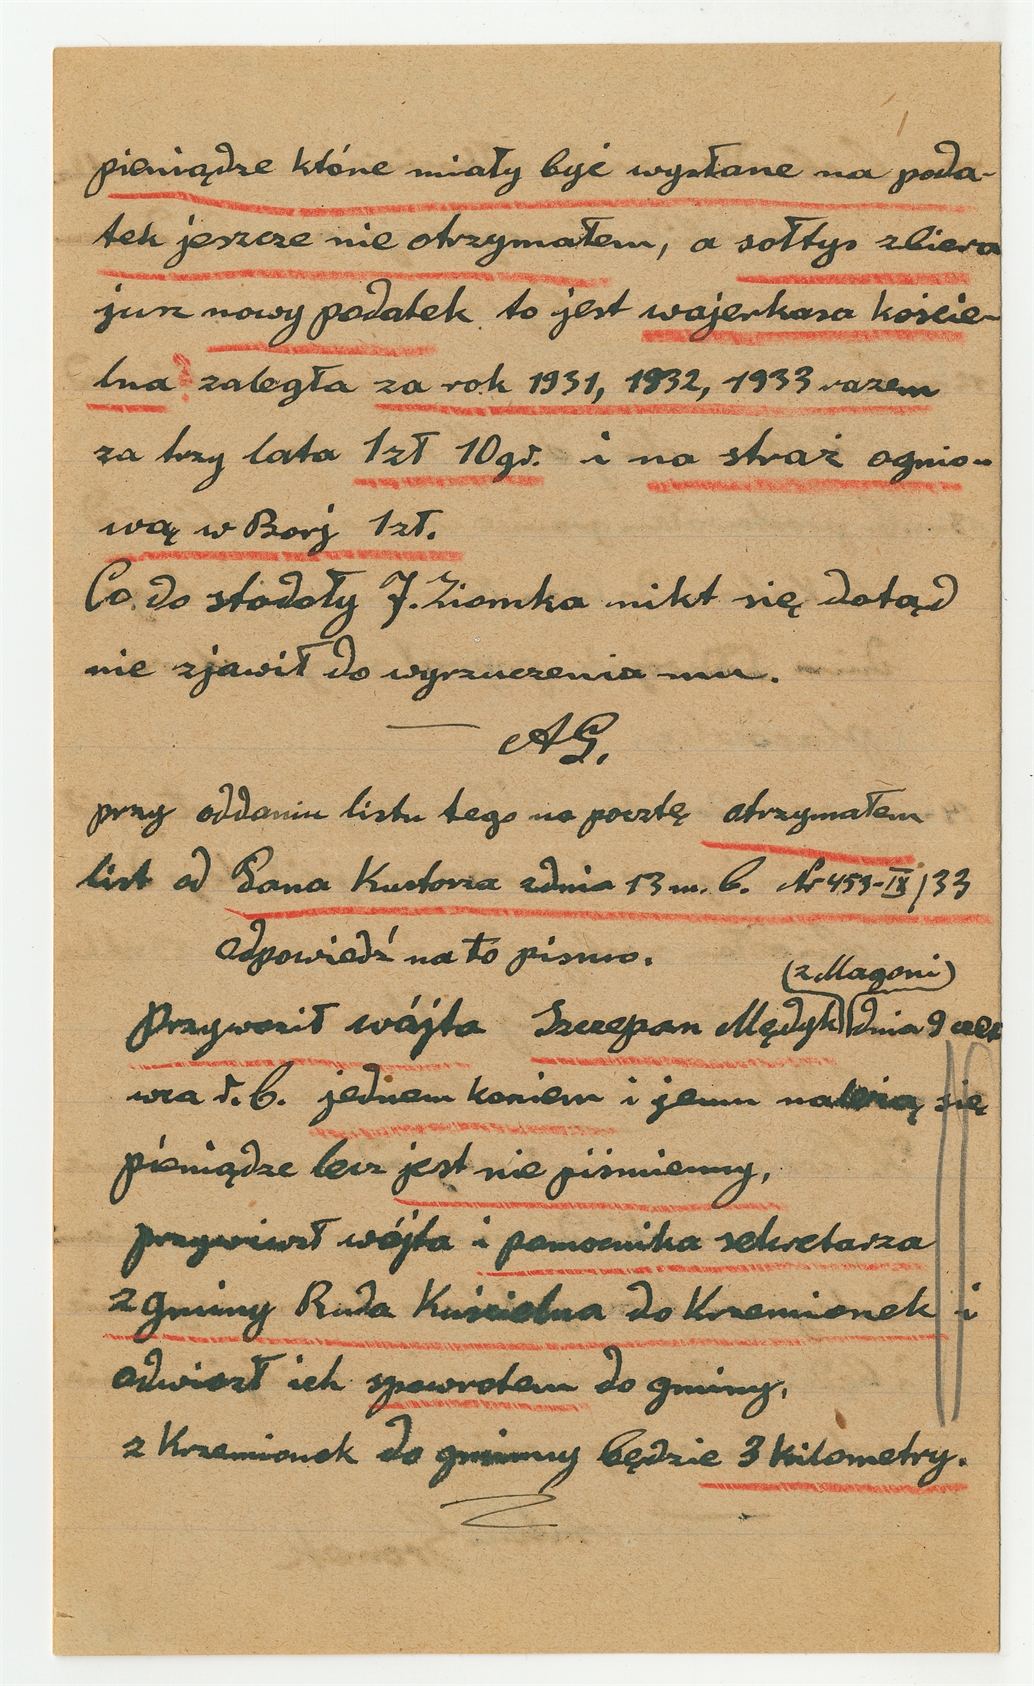 pieniądze któne miały być wysłane na poda-
tek jeszcze nie otrzymałem, a sołtys zbiera
jurz nowy podatek to jest wajerkasa kościel-
lna ? zaległa za rok 1931, 1932, 1933 razem
za trzy lata 1 zł 10 gr. i na straż ognio-
wą w Borj 1 zł.
Co do stodoły J. Ziomka nikt się dotąd
nie zjawił do wyrzuczenia mu.
AG.
przy oddaniu listu tego na pocztę otrzymałem
list od Pana Kustorza zdnia 13 m. b. Nr 459-IX/33
odpowiedź na to pismo.
(z Magoni)
Przyworził wójta Szczepan Mędyk dnia 9 czer
wca r. b. jednem koniem i jemu należą się
pieniądze lecz jest nie piśmienny,
przywiuzł wójta i pomocnika sekretarza
z gminy Ruda Kościelna do Krzemionek i
odwiozł ich spowrotem do gminy,
z Krzemionek do gminny będzie 3 kilometry.